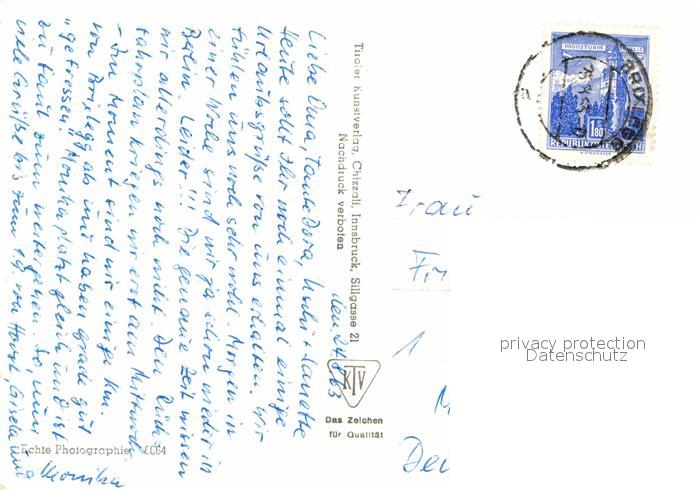 den 24.8.63
Liebe Oma, Tante Dora, Uschi + Lanette
Heute sollt Ihr noch einmal einige
Urlaubsgrüße von uns erhalten. Wir
fühlen uns noch sehr wohl. Morgen in
einer Woche sind wir ja schon wieder in
Berlin. Leider!!! Die genaue Zeit wissen
wir allerdings noch nicht. Den Rück-
fahrplan kriegen wir erst am Mittwoch.
- Im Moment sind wir einige Km.
von Brixlegg ab und haben grade gut
"gefressen". Monika platzt gleich und ist
zu faul zum weitergehen. So, nun
viele Grüße bis zum 1.9. von Horst, Gisela und
Monika
Tiroler Kunstverlag, Chizzali, Innsbruck, Sillgasse 21
Nachdruck verboten
KTV
Das Zeichen
für Qualität
Echte Photographie
MÜNZTURM HALL
BRIXLEGG
S 1.80
REPUBLIK ÖSTERREICH
Frau
Fr
1
Deu
privacy protection
Datenschutz